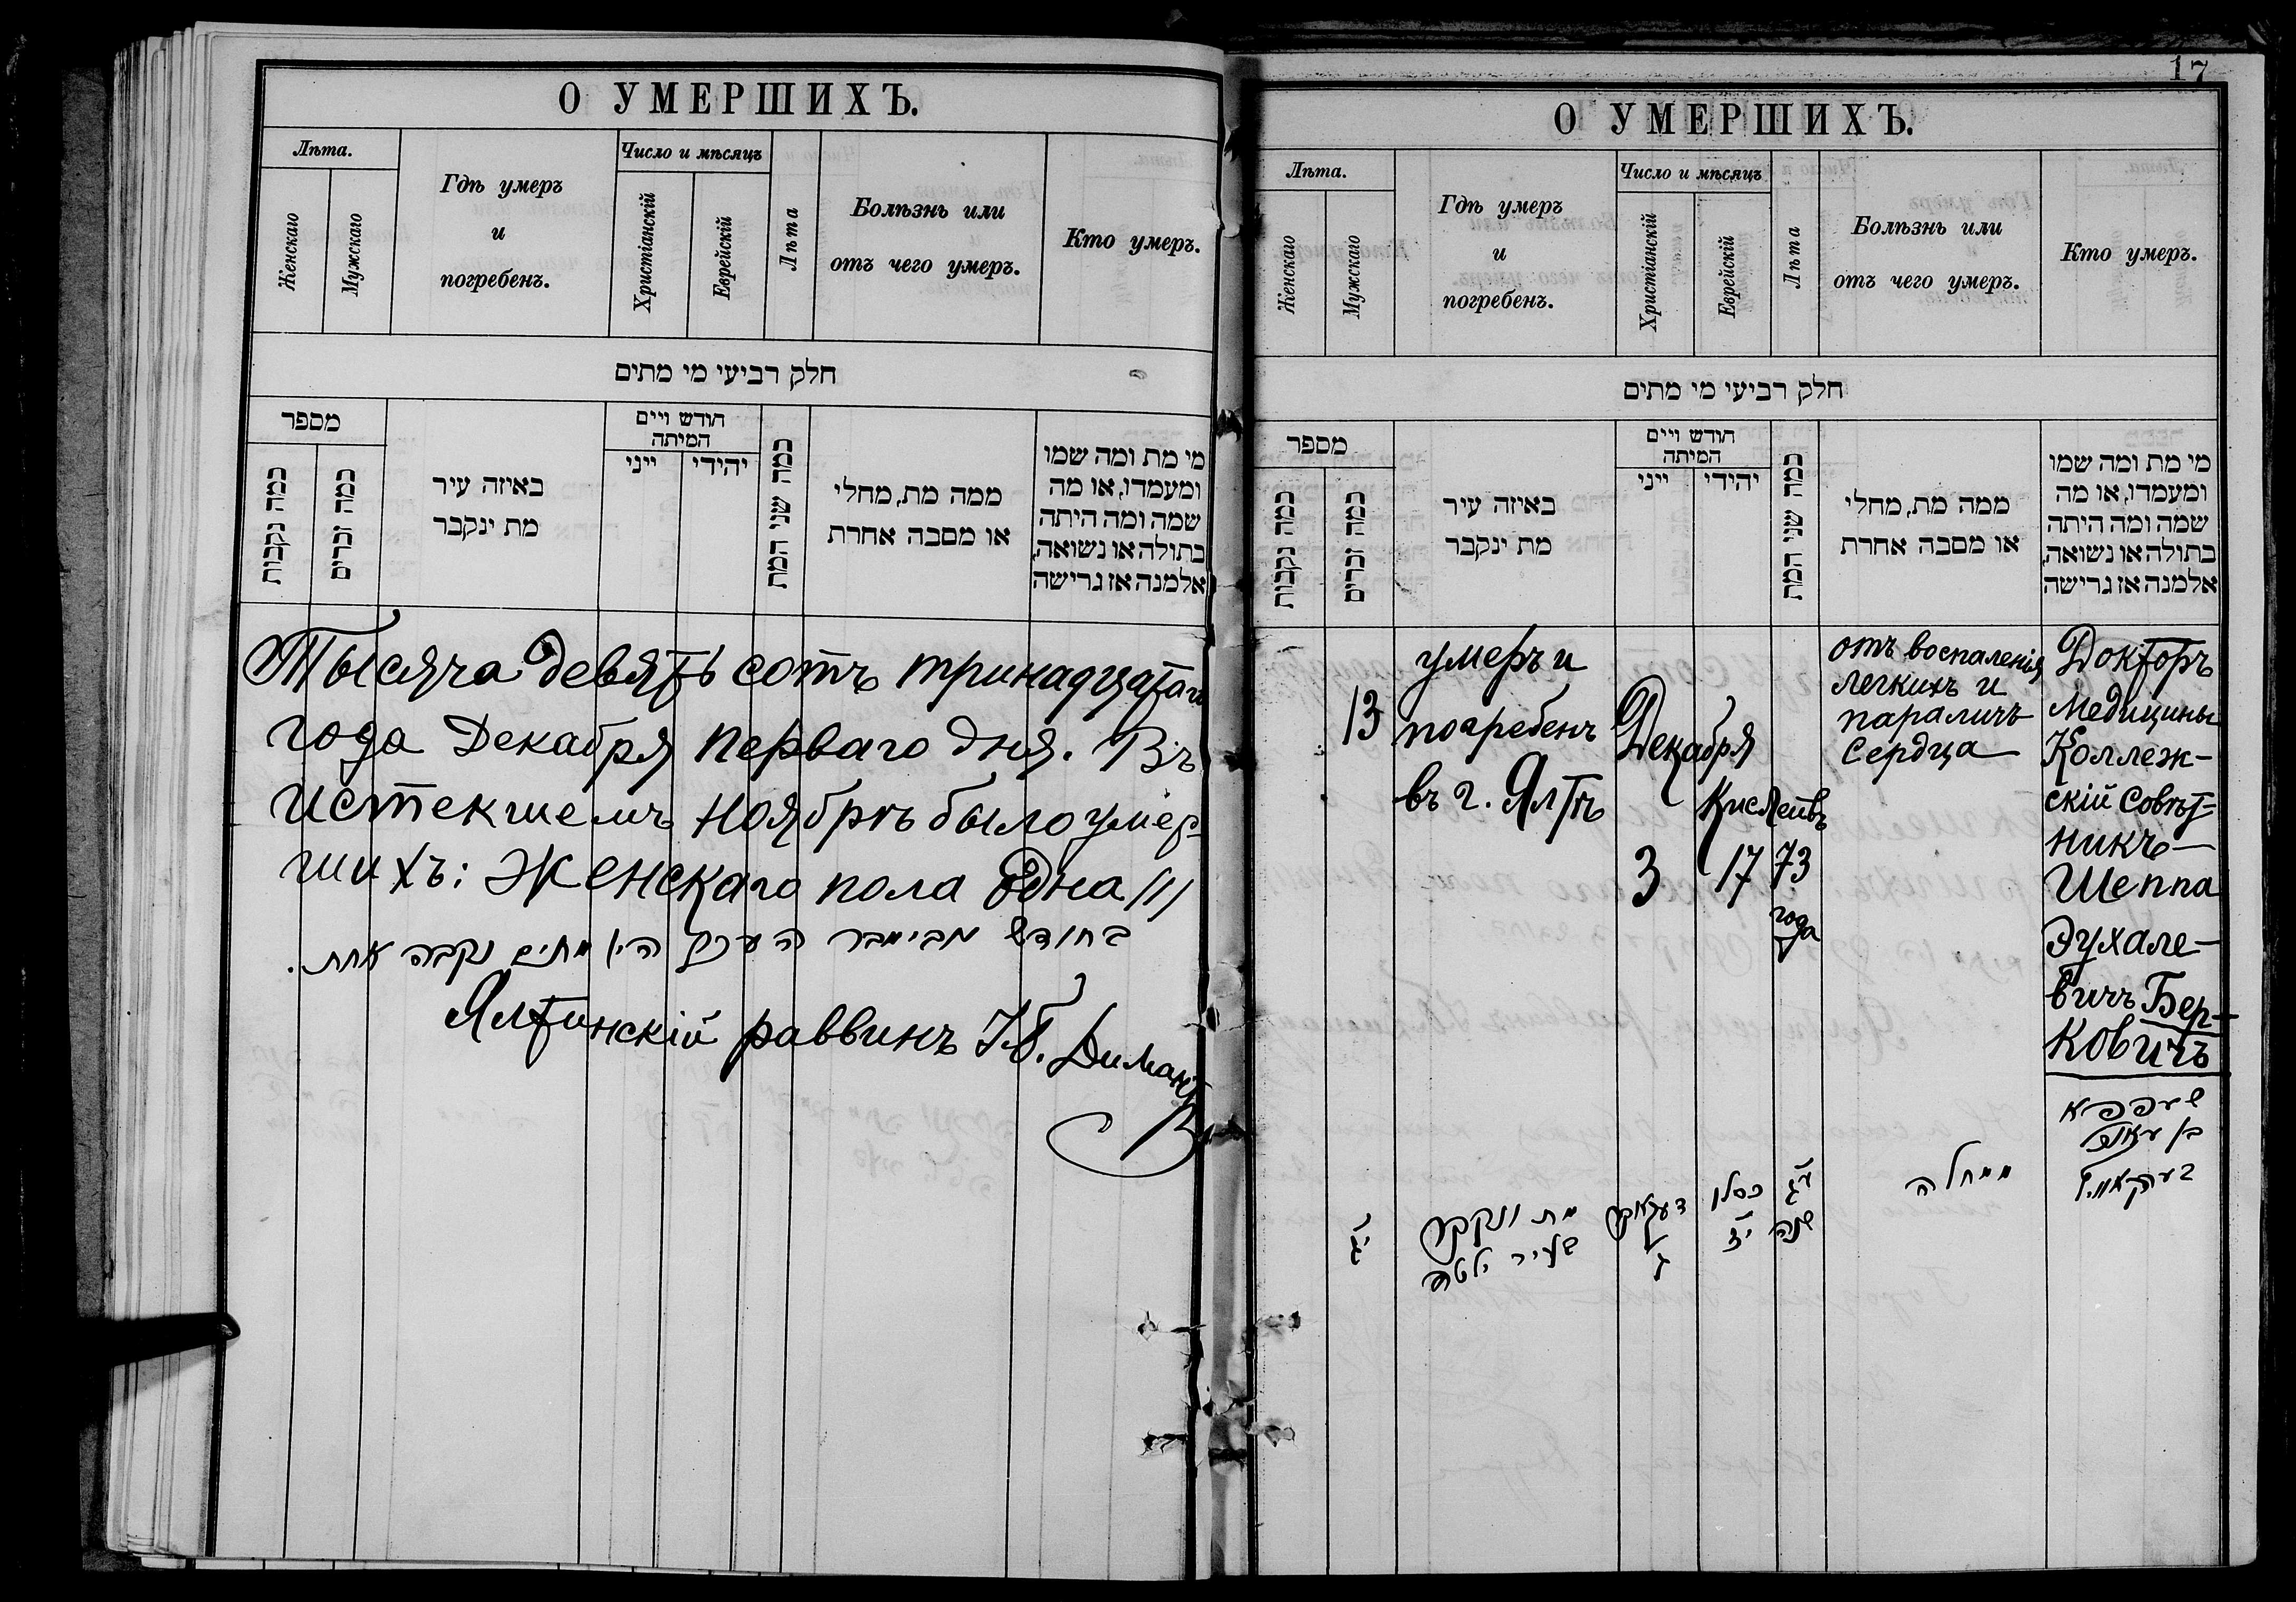 О УМЕРШИХЪ.
Лѣта.
Женскаго
Мужскаго
Гдѣ умеръ
и
погребенъ.
Число и мѣсяцъ
Христіанскій
Еврейскій
Лѣта
Болѣзнь или
отъ чего умеръ.
Кто умеръ.
חלק רביעי מי מתים
מספר
כמה נקבות
כמה זכרים
באיזה עיר
מת ינקבר
חודש ויים
המיתה
ייני
יהודי
כמה שני המת
ממה מת, מחלי
או מסבה אחרת
מי מת ומה שמו
ומעמדו, או מה
שמה ומה היתה
בתולה או נשואה,
אלמנה אז גרישה
Тысяча девять сотъ тринадцатаго
года Декабря перваго дня. Въ
истекшемъ ноябрѣ было умер-
шихъ: женскаго пола одна /1/
בחודש נאבימבר העבר היו מתים נקבה אחת.
Ялтинскій раввинъ
17
О УМЕРШИХЪ.
Лѣта.
Женскаго
Мужскаго
Гдѣ умеръ
и
погребенъ.
Число и мѣсяцъ
Христіанскій
Еврейскій
Лѣта
Болѣзнь или
отъ чего умеръ.
Кто умеръ.
חלק רביעי מי מתים
מספר
כמה נקבות
כמה זכרים
באיזה עיר
מת ינקבר
חודש ויים
המיתה
ייני
יהודי
כמה שני המת
ממה מת, מחלי
או מסבה אחרת
מי מת ומה שמו
ומעמדו, או מה
שמה ומה היתה
בתולה או נשואה,
אלמנה אז גרישה
13
умеръ и
погребенъ
въ г. Ялтѣ
Декабря
3
Кислейвъ
17
73
года
отъ воспаленія
легкихъ и
параличъ
сердца
Докторъ
Медицины
Коллеж-
скій Совѣт-
никъ—
Шеппа
Эухале-
вичъ Бер-
ковичъ
שעפפא
בן
בערקאוויץ
ממחלה
ע״ג
שנה
כסלו
י״ז
דעקאבר
ג׳
מת ונקבר
בעיר יאלטה
י״ג